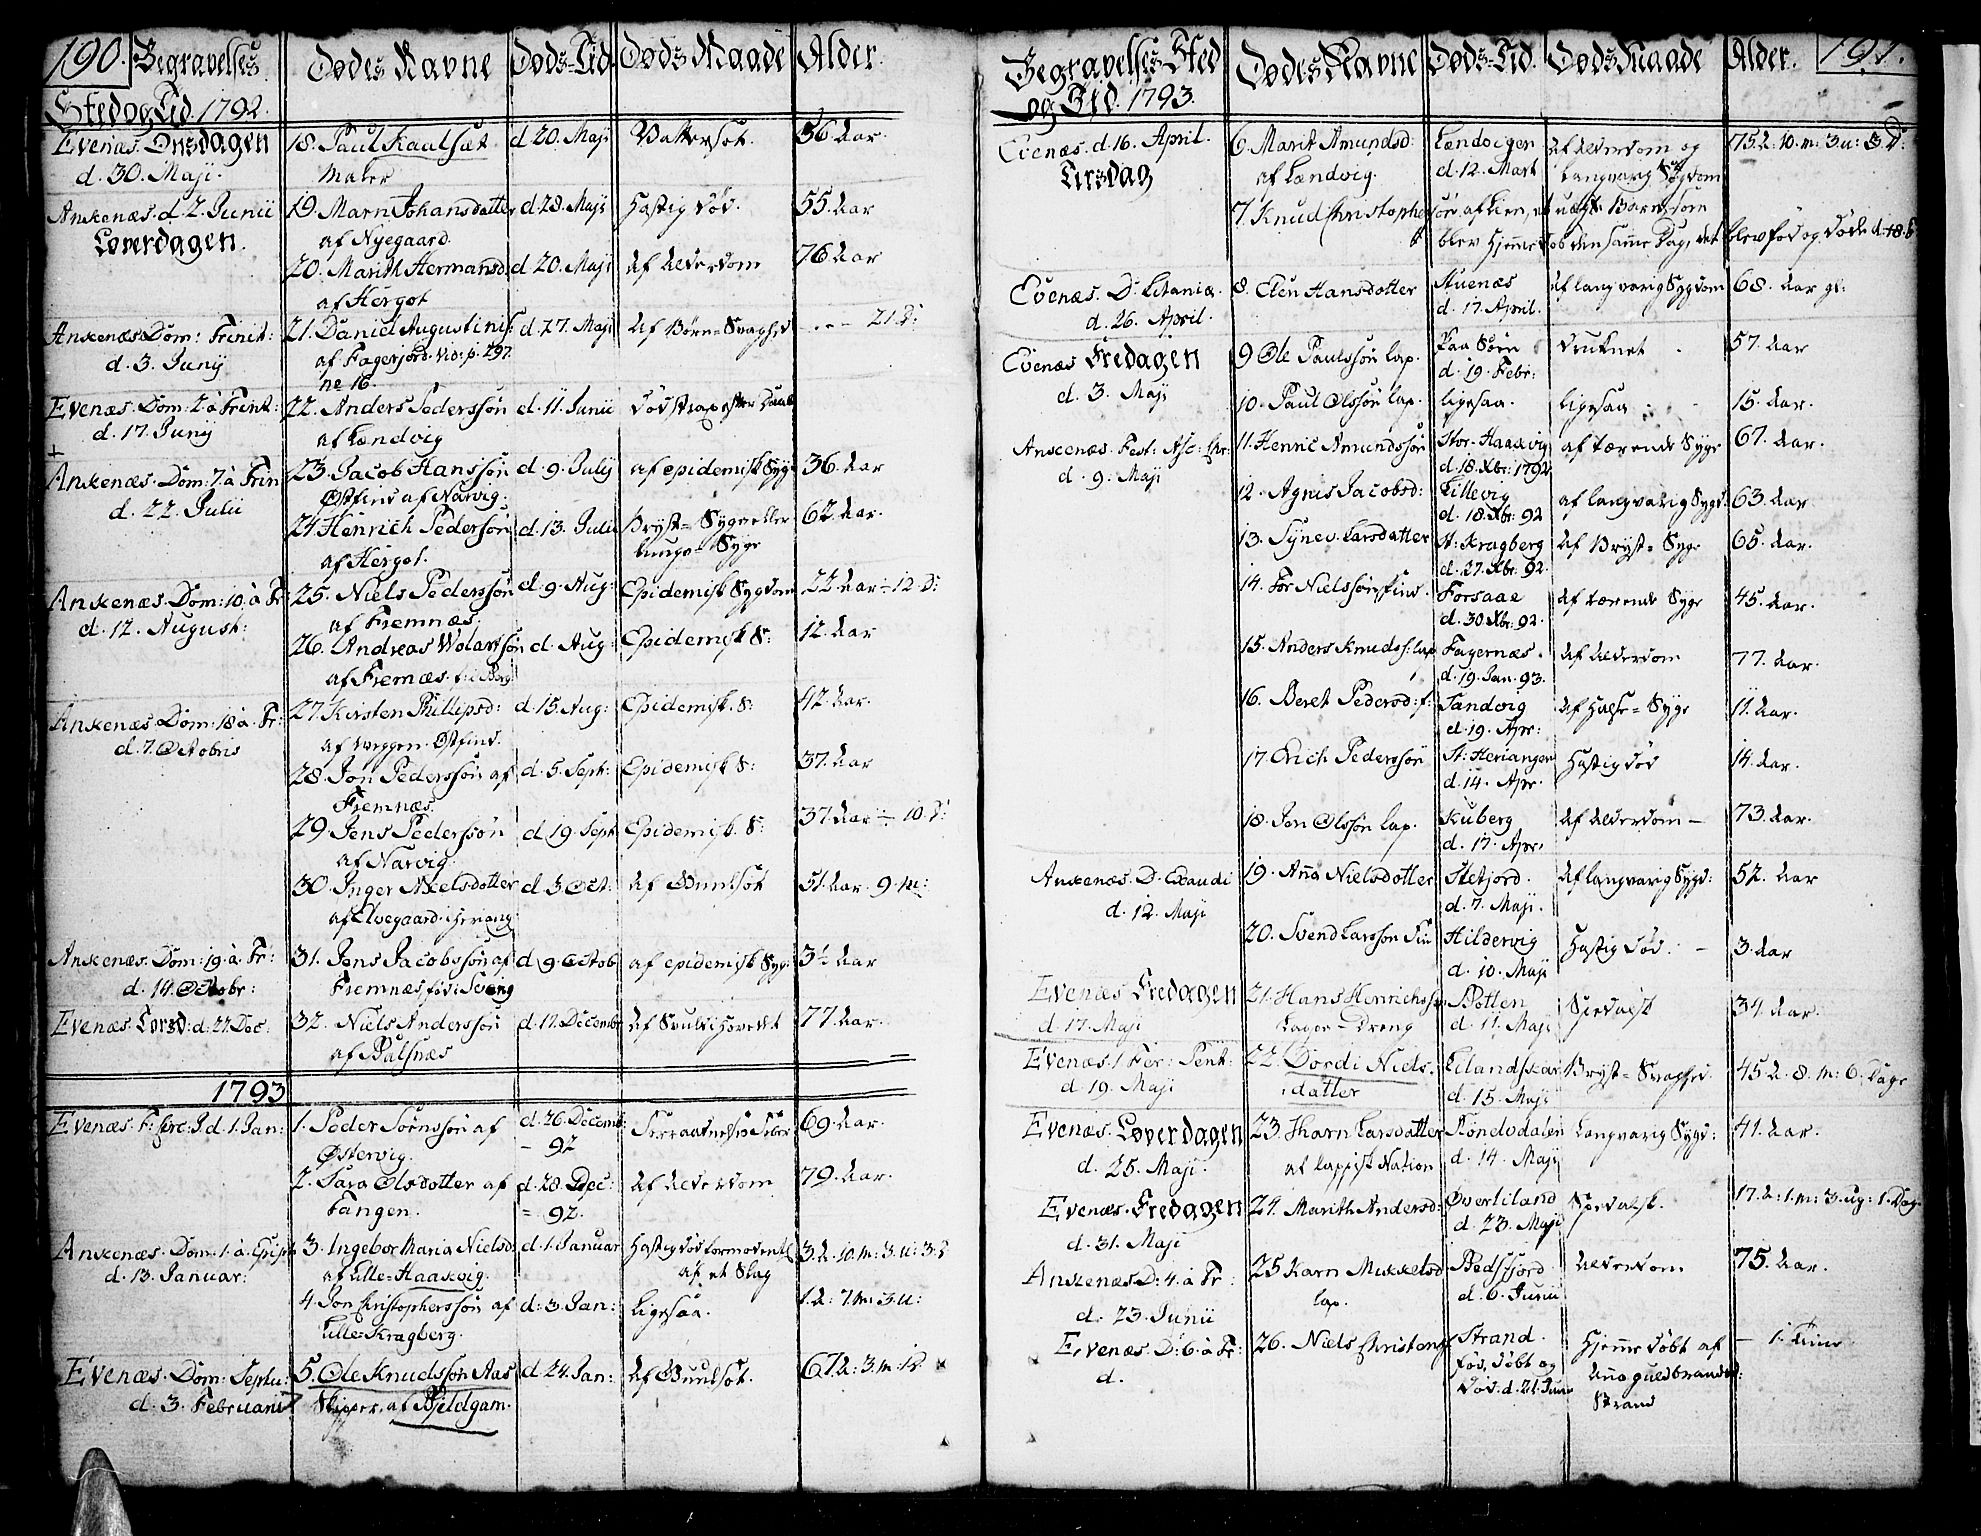 190.
Begravelses
Sted og Tid. 1792.
Dødes Navne
Døds-Tid
Døds-Maade
Alder.
Evenæs. Onsdagen
d. 30. Maji.
18. Paul Kaalsæt
Maler
d 20. Maji
Vattersot.
56. Aar.
Ankenæs. d. 2. Junii
Løverdagen.
19. Marn Johansdatter
af Nyegaard.
d. 28. Maji
Hastig død.
55. Aar
20. Marith Hermansd:
af Hergot
d. 20. Maji
Af Alderdom
76. Aar
Ankenæs Dom: Trinit:
d. 3. Junij
21. Daniel Augustinis:
af Fagerjord. vid: p. 197.
no 16.
d. 27. Maji
Af Børne-Svaghed
21. D:
Evenæs. Dom: 2. à Trinit:
d. 17. Junij
22. Anders Pederssøn
af Lændvig
d. 11. Junii
Ankenæs. Dom: 7. à Trin
d. 22. Julii
23. Jacob Hanssøn
Østfind af Narvig.
d. 9. Julij
af epidemisk Syge
36. Aar
24. Henrich Pederssøn
af Hergot.
d. 13. Julii
Bryst-Syge eller
Lunge-Syge
62. Aar.
Ankenæs. Dom: 10. à Tr:
d. 12. August:
25. Niels Pederssøn
af Fremnæs.
d. 9. Aug:
Epidemisk Sygdom
22. Aar - 12. D:
26. Andreas Wolartssøn
af Fremnæs.
d. Aug:
Epidemisk S:
12. Aar
Ankenæs. Dom: 18. à. Tr:
d. 7. Octobris
27. Kirsten Phillipsd:
af Weggen. Østfind.
d. 15. Aug:
Epidemisk. S:
42. Aar.
28. Jon Pederssøn af
Fremnæs.
d. 5. Sept:
Epidemisk S:
37. Aar
29. Jens Pederssøn
af Narvig.
d. 19. Sept
Epidemisk. S:
37. Aar - 10. D:
30. Inger Nielsdotter
af Elvegaard i Heriang
d. 3. Oct:
Af Buulsot
51. Aar. 9. M:
Ankenæs. Dom: 19. à. Tr:
d. 14. Octobr:
31. Jens Jacobssøn af
Fremnæs, fød i Sveing
d. 9. Octob
af epidemisk Syg:
3½ Aar
Evenæs. Torsd: d: 27. Dec:
32. Niels Andersson
af Balsnæs
d. 17. Decembr
Af Svulst i Hovedet
77. Aar.
1793
Evenæs. F: Circ: D. d. 1. Jan:
1. Peder Sørnssøn af
Østervig.
d. 26. Decemb:
- 92
69. Aar.
2. Sara Olsdotter af
Tangen.
d. 28. Dec:
- 92.
Af Alderdom
79. Aar.
Ankenæs. Dom. 1. à. Epiph
d. 13. Januar:
3. Ingebor Maria Nielsd.
af Lille-Haakvig.
d. 1. Januar
Hastig død formodentl
af et Slag
3. A. 10. M: 3. U: 3. D
4. Jon Christopherssøn af
Lille-Kragberg.
d. 3. Jan:
Ligesaa.
1. A: 7. M: 3. U:
Evenæs. Dom: Septu:
d. 3. Februarii
5. Ole Knudssøn Aas
Skipper, af Bjeldgam.
d. 24. Jan:
Af Buulsot.
67. A: 3. M: 1. D
191.
Begravelses Sted
og Tid. 1793.
Dødes Navne
Døds-Tid.
Døds-Maade
Alder.
Evenæs. d. 16. April.
Tirsdag
6. Marit Amundsd:
af Lændvig.
Lændvigen
d. 12. Mart
Af Alderdom og
Langvarig Sygdom
75. A. 10. M: 3. U: 3. D:
7. Knud Christophersøn, af Lien, et uægte Barn, som
blev hjemmedøb den samme Dag, det blev fød og døde d. 18.
Evenæs. D. Litaniæ.
d. 26. April.
8. Elen Hansdotter
Stuenæs
d. 17. April.
Af langvarig Sygdom
68. Aar gl:
Evenæs Fredagen
d. 3. Maji
9. Ole Paulssøn Lap.
Paa Søen
d. 19. Febr:
Druknet.
57. Aar
10. Paul Olssøn Lap.
ligesaa.
ligesaa
15. Aar.
Ankenæs. Fest: Asc: Chr:
d. 9. Maji
11. Henric Amundssøn
Stor-Haakvig
d. 18. Xbr: 1792
af tærende Syge
67. Aar.
12. Agnis Jacobsd:
Lillevig
d. 18. Xbr: 92
af langvarig Sygd:
63. Aar.
13. Synev. Larsdatter
St: Kragberg
d. 27. Xbr: 92.
Af Bryst-Syge
65. Aar.
14. Tor Nielssøn, find.
Forsaae
d. 30. Xbr: 92.
Af tærende Syge
45. Aar.
15. Anders Knuds: Lap
Fagernæs.
d. 19. Jan. 93.
Af Alderdom
77. Aar.
16. Beret Pedersd: f:
Tandvig
d. 19. Apr:
Af Halse-Syge
11. Aar.
17. Erich Pederssøn
St: Heriangen
d. 14. Apr.
Hastig død
14. Aar.
18. Jon Olssøn Lap.
Kuberg
d. 17. Apr.
Af Alderdom -
73. Aar.
Ankenæs. D. Exaudi
d. 12. Maji
19. Aña Nielsdotter
Stefjord.
d. 7. Maji.
Af langvarig Sygd:
52. Aar
20. Svend Larsson Fin
Hildervig
d. 10. Maji
Hastig død. -
3. Aar
Evenæs Fredagen
d. 17. Maji
21. Hans Henrichssøn
Lager-Dreng
Botten
d. 11. Maji
Spedalsk
34. Aar.
Evenæs. 1. Fer: Pent:
d. 19. Maji
22. Dordi Niels.
datter
Eilandskar
d. 15. Maji
Bryst-Svaghed.
45. A. 8. M: 6. Dage
Evenæs. Løverdagen
d. 25. Maji.
23. Marn Larsdatter
af Lappisk Nation
Tøndodalen
d. 14. Maji
Langvarig Sygd:
41. Aar.
Evenæs. Fredagen
d. 31. Maji
24. Marith Andersd:
Øverliland
d. 23. Maji
Spedalsk.
17. A: 1. M: 3. Ug: 1. Dag
Ankenæs D: 4. à Tr:
d. 23. Junii
25. Karn Mikkelsd
Lap.
Bedsfjord
d. 6. Junii
Alderdom
75. Aar.
Evenæs. D: 6. à Tr:
d.
26. Næls Christens:
Strand.
fød, døbt og
død. d. 21. Juni
Hjemmedøbt af
Aña Guldbrandsd:
Strand
- 1. Time